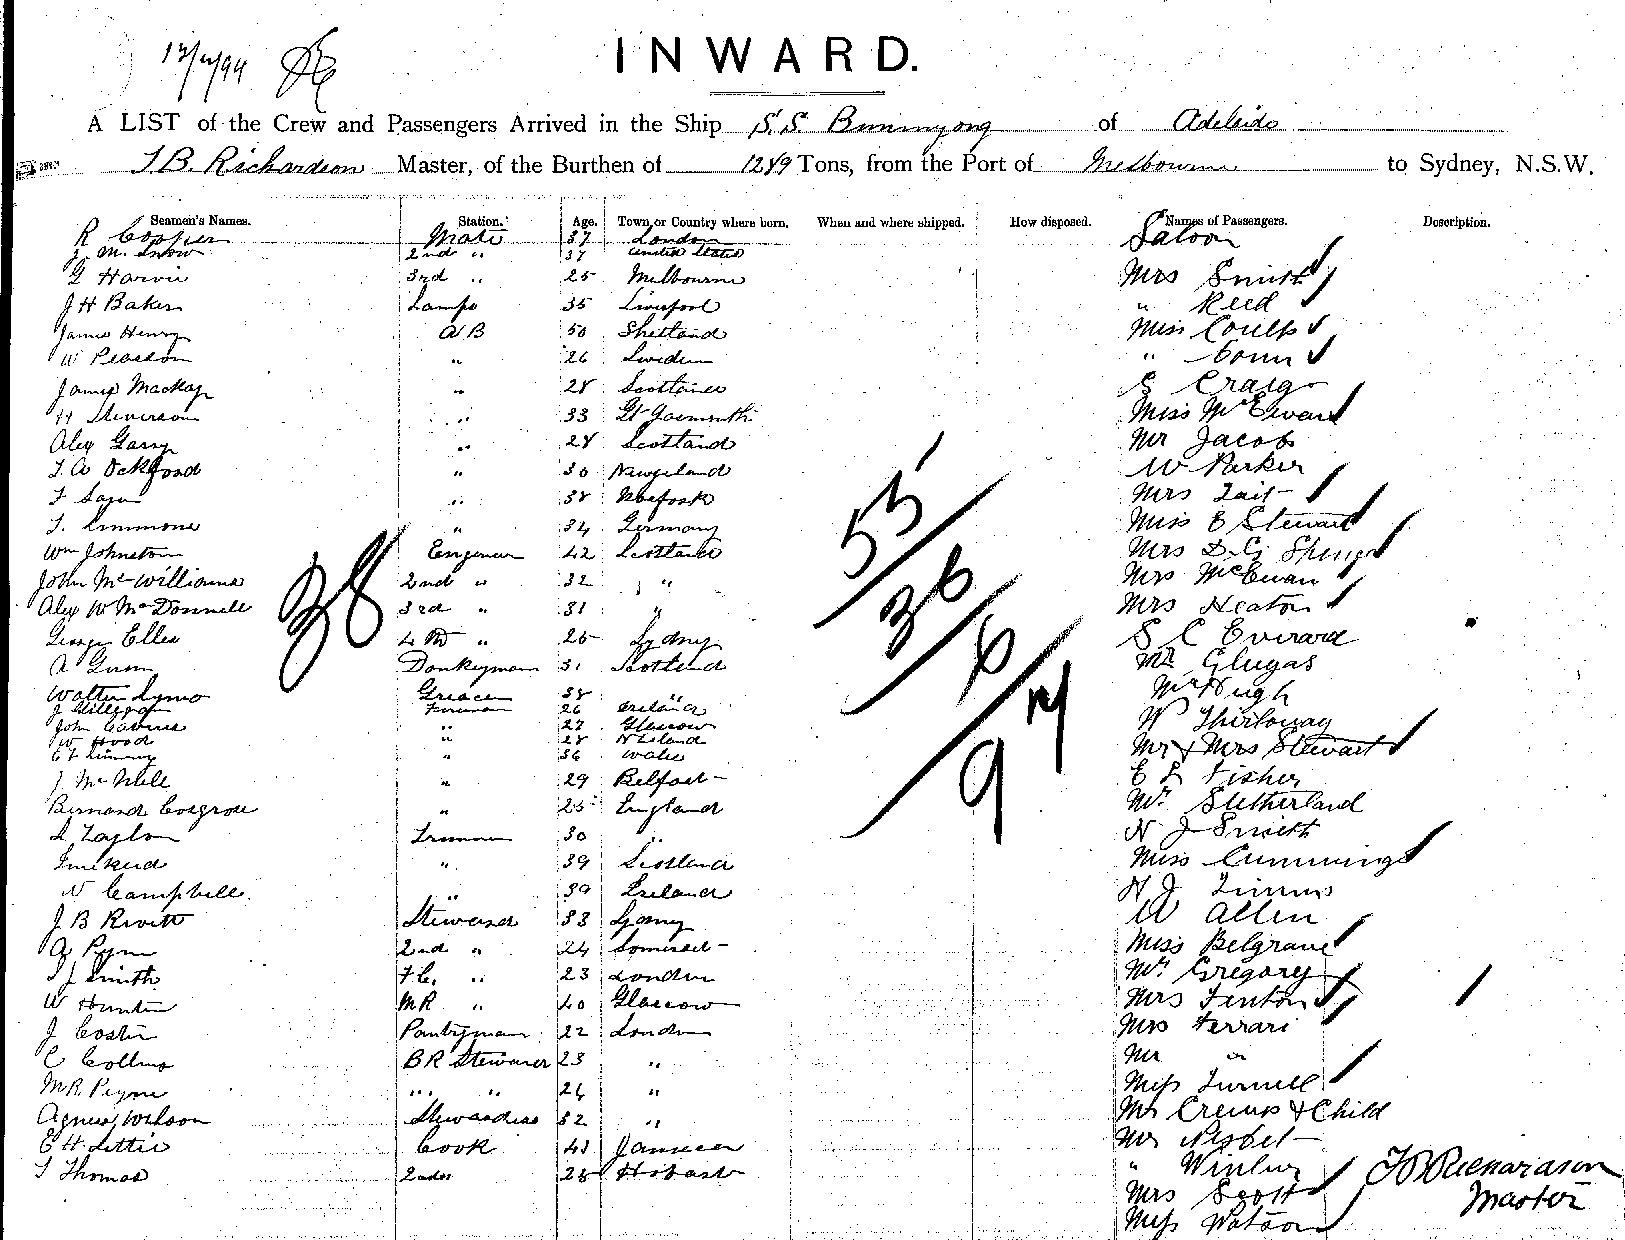 INWARD.
A LIST of the Crew and Passengers Arrived in the Ship S.S. Buninyong of Adelaide
T.B. Richardson Master, of the Burthen of 1289 Tons, from the Port of Melbourne to Sydney, N.S.W.
Seamen's Names. Station. Age. Town or Country where born. When and where shipped. How disposed. Names of Passengers. Description.
R Cooper Mate 37 London Saloon
J M. Snow 2nd " 37 United States
G Harvie 3rd " 25 Melbourne Mrs Smith
J H Baker Lamps 35 Liverpool " Reed
James Henry AB 50 Shetland Miss Coulls
W Pearson " 26 Sweden "
James Mackay " 28 Scotland Craig
H Steverson " 33 Gt Yarmouth Miss McEwan
Alex Garry " 28 Scotland Mr Jacobs
T. A Ockford " 30 Newzeland W Parker
" 38 Norfolk Mrs Tait
T. Simmons " 34 Germany Miss E Stewart
Wm Johnston Engineer 42 Scotland Mrs D. G.
John McWilliams 2nd " 32 " Mrs McEwan
Alex W McDonnell 3rd " 31 " Mrs Heaton
George Elles 4th " 25 Sydney S C Everard
A Gunn Donkeyman 31 Scotland Mr Glugas
Walter Greaser 38 " McHugh
J Fireman 26 Ireland
John " 27 Glasgow W Thirloway
W Hood " 28 N Zeland
" 36 Wales Mr & Mrs Stewart
J McNeil " 29 Belfast E L Fisher
Bernard Cosgrove " 25 England Mr Sutherland
Taylor Trimmer 30 " N J Smith
" 39 Scotland Miss Cummings
N Campbell " 39 Ireland H J Timms
J B Rivett Steward 33 W Allen
Pym 2nd " 24 Somerset Miss Belgrave
T J Smith F.C. " 23 London Mr Gregory
W Hunter MR " 40 Glascow Mrs Fenton
J Coster Pantryman 22 London Mrs Ferrari
C Collins BR Steward 23 " Mr "
M R Payne " " 24 " Miss Turnell
Agnes Wilson Stewardess 32 " Mr Cremp & Child
E H Lettie Cook 41 Jamaica Mr Nisbet
T Thomas 2nd do 28 Hobart "
Mrs Scott
Miss Watson
T B Richardson
Master
38
53
36
6
97